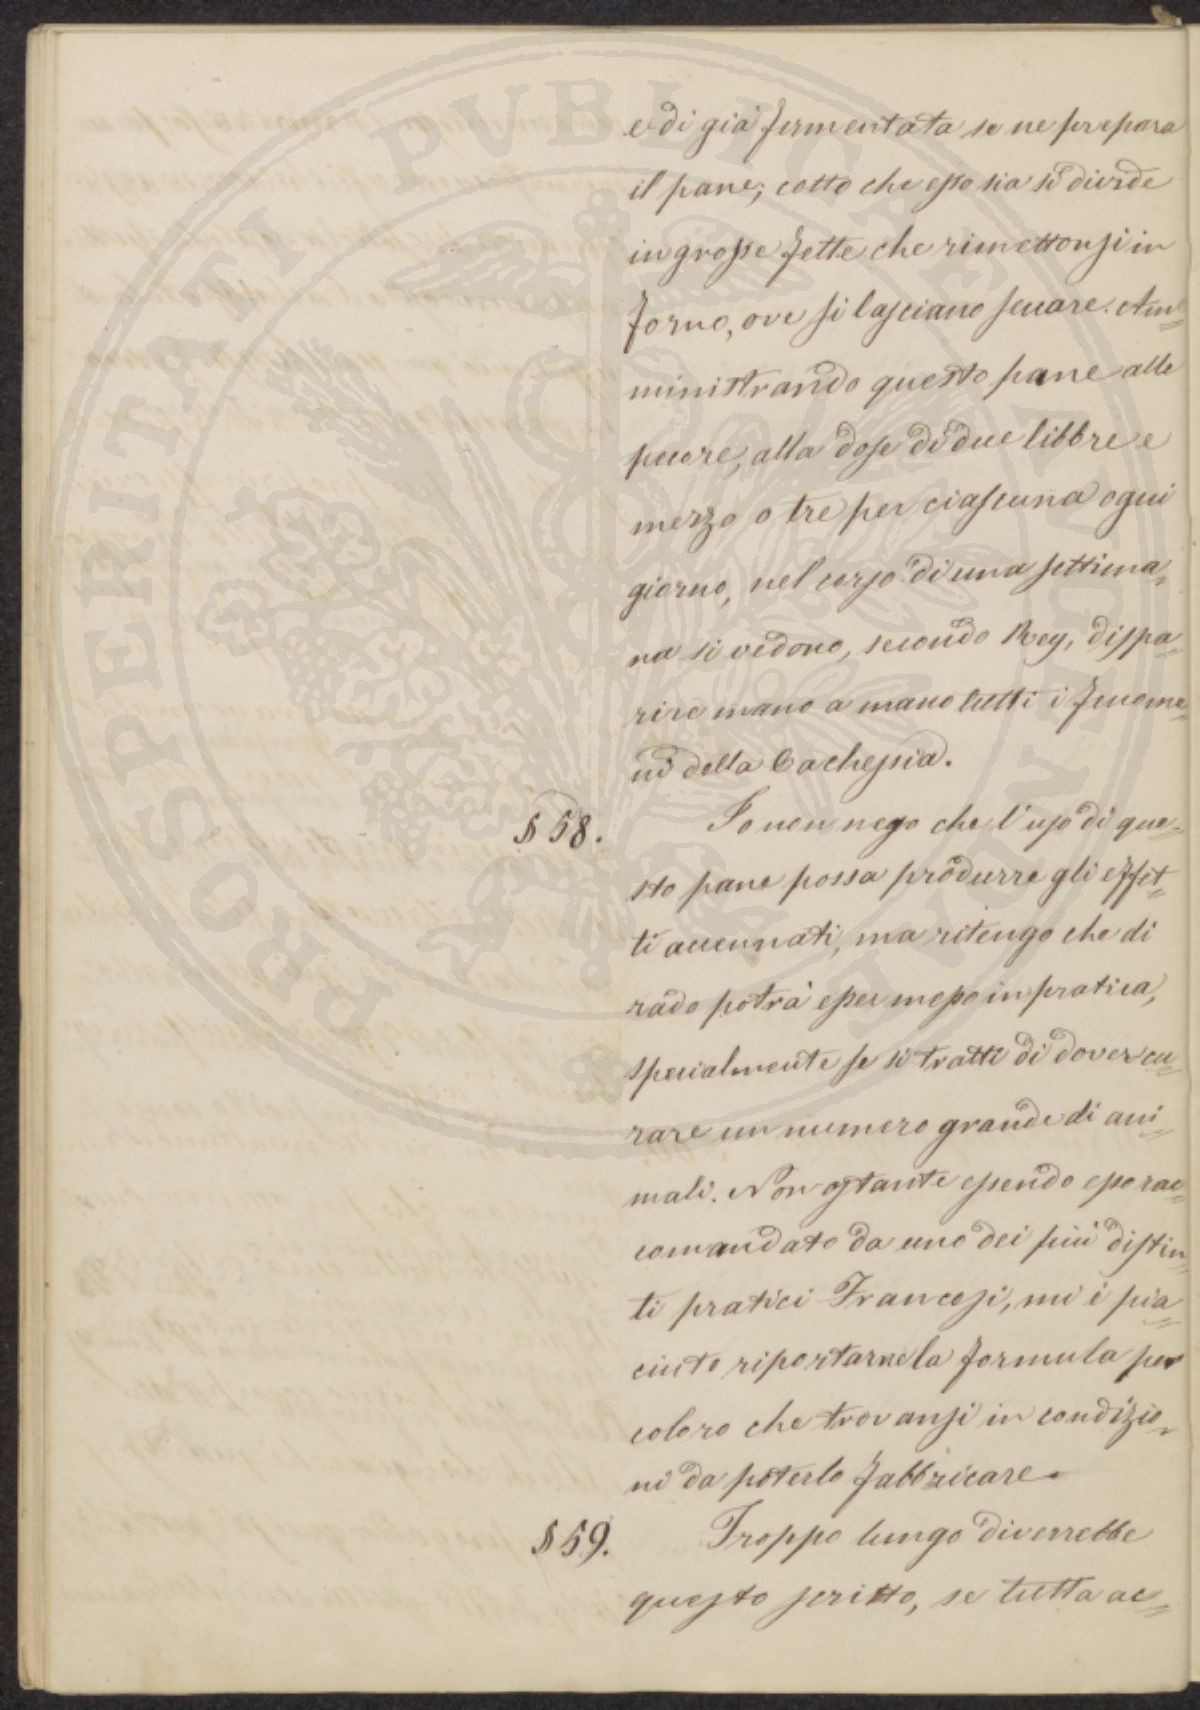 e di già fermentata se ne prepara
il pane; cotto che esso sia si divide
in grosse fette che rimettonsi in
forno, ove si lasciano seccare. Am=
ministrando questo pane alle
pecore, alla dose di due libbre e
mezzo o tre per ciascuna ogni
giorno, nel corso di una settima=
na si vedono, secondo Rey, dispa=
rire mano a mano tutti i fenome=
ni della Cachessia.
§ 58. Io non nego che l'uso di que=
sto pane possa produrre gli effet=
ti accennati, ma ritengo che di
rado potrà esser messo in pratica,
specialmente se si tratti di dover cu=
rare un numero grande di ani=
mali. Non ostante essendo esso rac=
comandato da uno dei più distin=
ti pratici Francesi, mi è pia=
ciuto riportarne la formula per
coloro che trovansi in condizio=
ni da poterlo fabbricare.
§ 59. Troppo lungo diverrebbe
questo scritto, se tutta ac=
PROSPERITATI PUBLICAE AUGENDAE